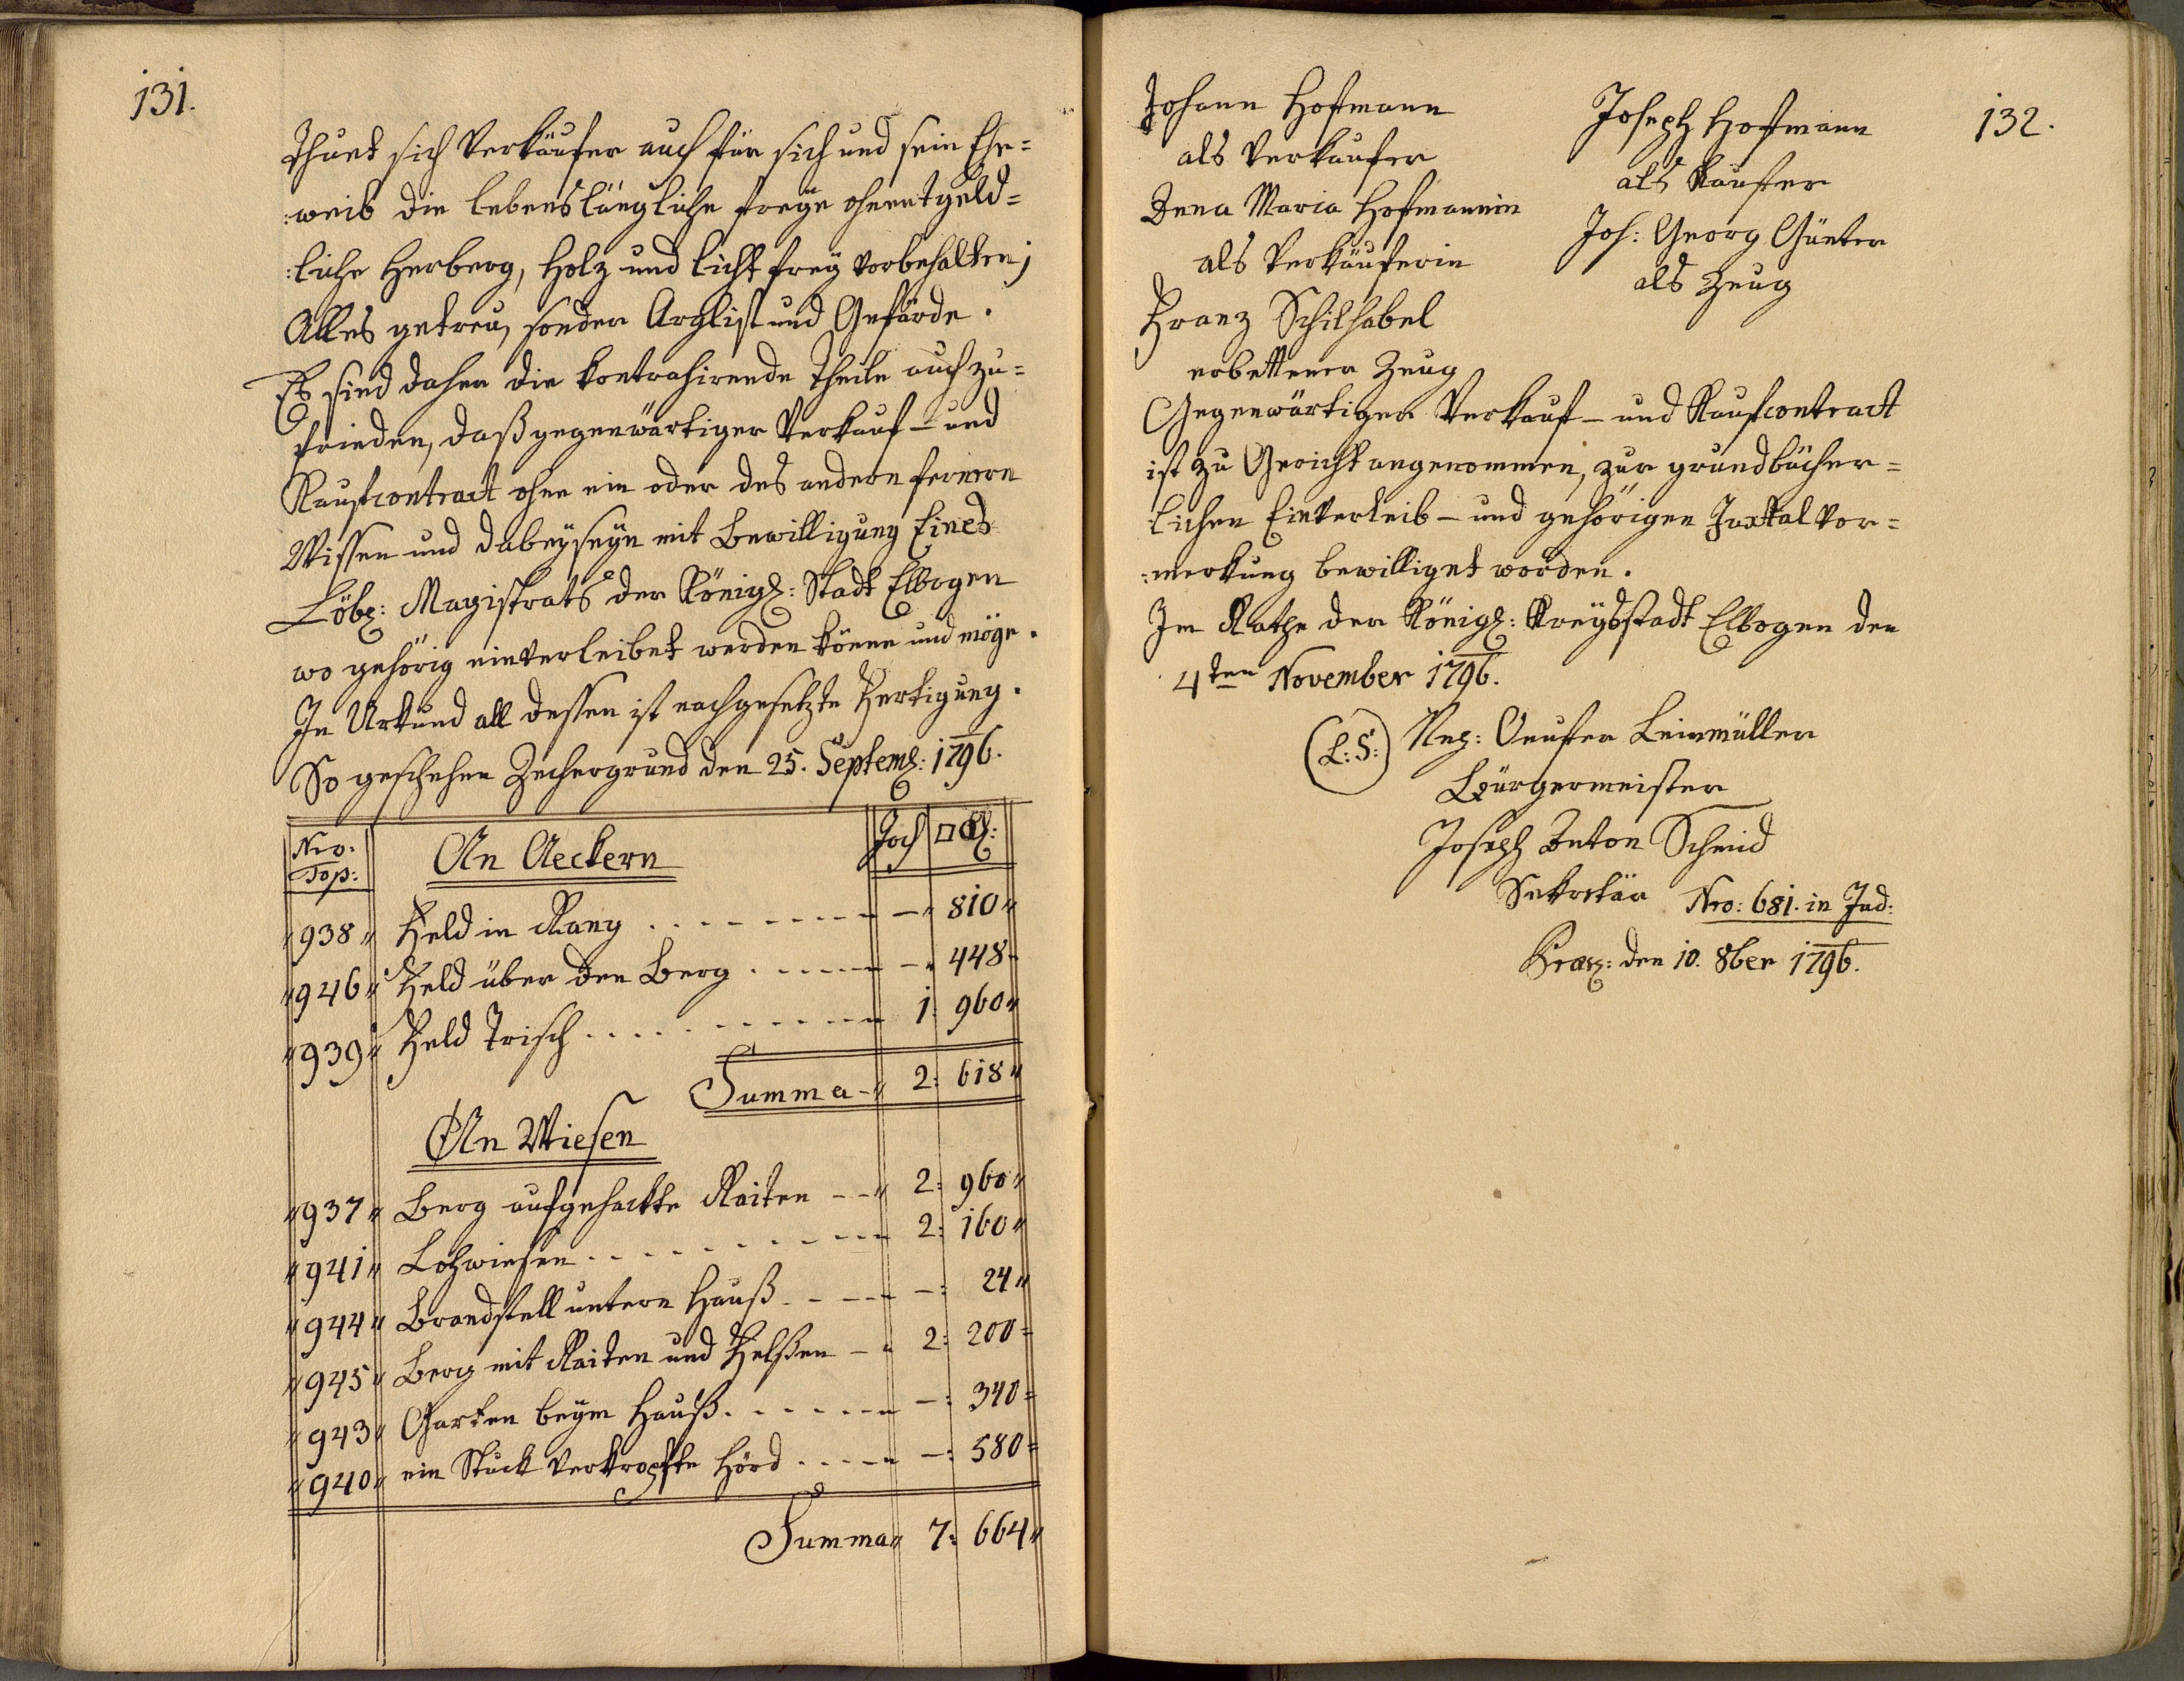 131.
Thuet sich Verkäufer auch für sich und sein Ehe=
:weib die lebenslängliche freye ohnentgeld=
:liche Herberg, Holz und licht frey vorbehalten;
Alles getreu, sonder Arglist und Gefärde.
Es sind daher die kontrahirende Theile auch zu=
frieden, daß gegenwärtiger Verkauf- und
Kaufcontract ohne ein oder des andern fernern
Wissen und dabeyseyn mit Bewilligung Eines
Löbl: Magistrats der Königl: Stadt Elbogen
wo gehörig einverleibet werden könne und möge.
In Urkund all dessen ist nachgesetzte Fertigung.
So geschehen Zechergrund den 25. Septemb: 1796.
Nro: Top: An Aeckern Joch □ Kl:
" 938 " Feld in Rang - - - - - - - - -" 810"
" 946 " Feld über den Berg - - - - - -" 448-
" 939 " Feld Trisch - - - - - - - - 1: 960"
Summa -" 2: 618"
An Wiesen
" 937 " Berg aufgehackte Raiten - -" 2: 960"
" 941 " Lohwiesen - - - - - - - - 2: 160"
" 944 " Brandstell untern Hauß - - - - -: 24"
" 945 " Berg mit Raiten und Felßen - " 2: 200=
" 943 " Garten beym Hauß - - - - - - -: 340=
" 940 " ein Stuck verkropfte Hörd - - - - -: 580=
Summa" 7: 664"
132.
Johann Hofmann
als Verkaufer
Anna Maria Hofmannin
als Verkäuferin
Franz Schilhabel
erbettener Zeug
Joseph Hofmann
als Kaufer
Joh: Georg Günter
als Zeug
Gegenwärtiger Verkauf- und Kaufcontract
ist zu Gericht angenommen, zur grundbücher=
lichen Einverleib- und gehörigen Juxtal Vor=
:merkung bewilliget worden.
Im Rathe der Königl: Kreysstadt Elbogen den
4ten November 1796.
(L:S:) Leinmüller
Bürgermeister
Joseph Anton Schmid
Sekretär Nro: 681. in Jud:
den 10. 8ber 1796.